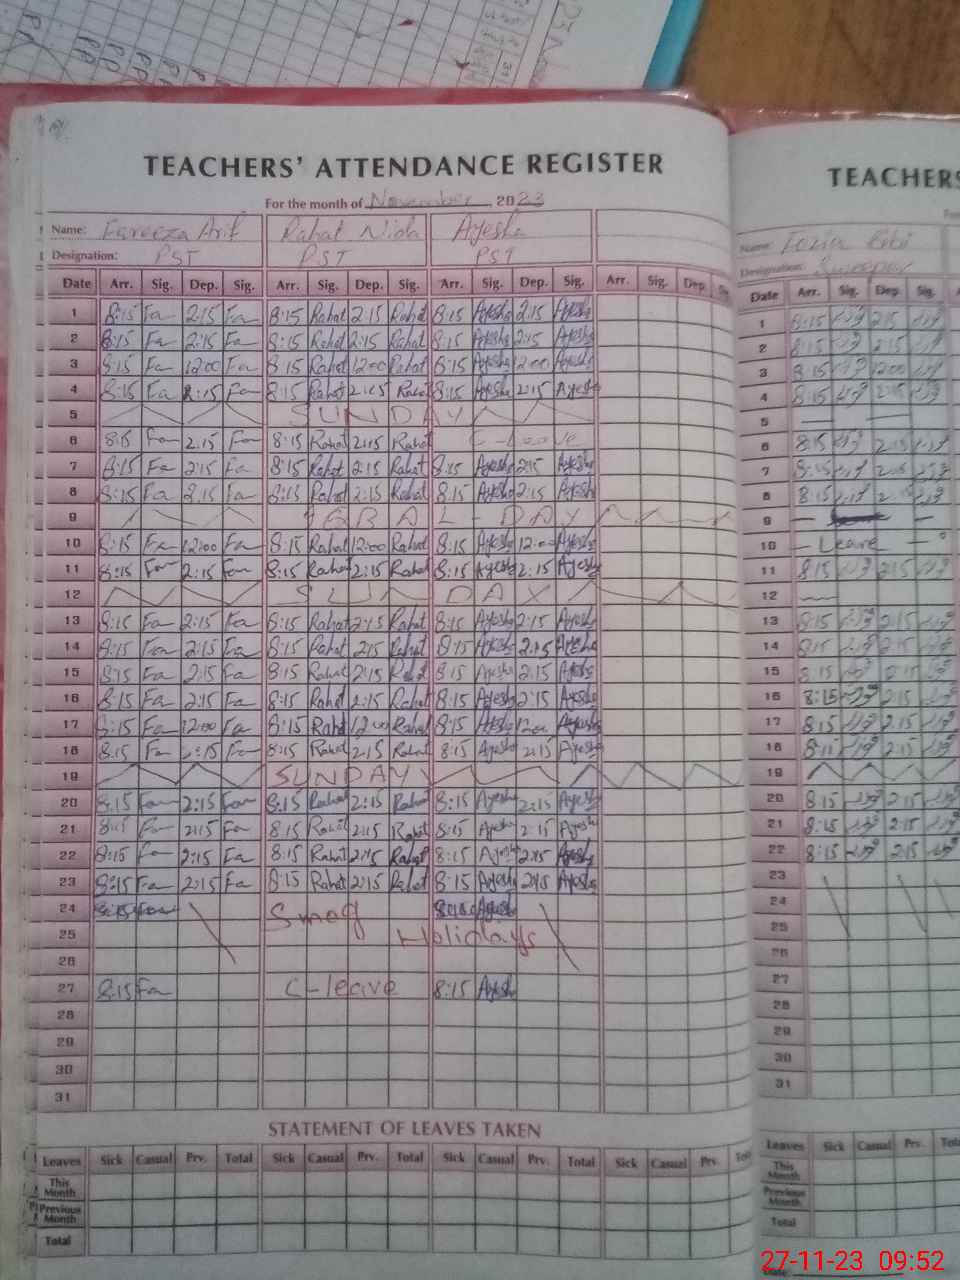 TEACHERS' ATTENDANCE REGISTER
For the month of November, 2023
Name: Fareeza Arif Rahat Nida Ayesha
Designation: PST PST PST
Date Arr. Sig. Dep. Sig. Arr. Sig. Dep. Sig. Arr. Sig. Dep. Sig. Arr. Sig. Dep.
1 8:15 Fa 2:15 Fa 8:15 Rahat 2:15 Rahat 8:15 Ayesha 2:15 Ayesha
2 8:15 Fa 2:15 Fa 8:15 Rahat 2:15 Rahat 8:15 Ayesha 2:15 Ayesha
3 8:15 Fa 12:00 Fa 8:15 Rahat 12:00 Rahat 8:15 Ayesha 12:00 Ayesha
4 8:15 Fa 2:15 Fa 8:15 Rahat 2:15 Rahat 8:15 Ayesha 2:15 Ayesha
5 SUNDAY
6 8:15 Fa 2:15 Fa 8:15 Rahat 2:15 Rahat C-Leave
7 8:15 Fa 2:15 Fa 8:15 Rahat 2:15 Rahat 8:15 Ayesha 2:15 Ayesha
8 8:15 Fa 2:15 Fa 8:15 Rahat 2:15 Rahat 8:15 Ayesha 2:15 Ayesha
9 IQBAL-DAY
10 8:15 Fa 12:00 Fa 8:15 Rahat 12:00 Rahat 8:15 Ayesha 12:00 Ayesha
11 8:15 Fa 2:15 Fa 8:15 Rahat 2:15 Rahat 8:15 Ayesha 2:15 Ayesha
12 SUNDAY
13 8:15 Fa 2:15 Fa 8:15 Rahat 2:15 Rahat 8:15 Ayesha 2:15 Ayesha
14 8:15 Fa 2:15 Fa 8:15 Rahat 2:15 Rahat 8:15 Ayesha 2:15 Ayesha
15 8:15 Fa 2:15 Fa 8:15 Rahat 2:15 Rahat 8:15 Ayesha 2:15 Ayesha
16 8:15 Fa 2:15 Fa 8:15 Rahat 2:15 Rahat 8:15 Ayesha 2:15 Ayesha
17 8:15 Fa 12:00 Fa 8:15 Rahat 12:00 Rahat 8:15 Ayesha 12:00 Ayesha
18 8:15 Fa 2:15 Fa 8:15 Rahat 2:15 Rahat 8:15 Ayesha 2:15 Ayesha
19 SUNDAY
20 8:15 Fa 2:15 Fa 8:15 Rahat 2:15 Rahat 8:15 Ayesha 2:15 Ayesha
21 8:15 Fa 2:15 Fa 8:15 Rahat 2:15 Rahat 8:15 Ayesha 2:15 Ayesha
22 8:15 Fa 2:15 Fa 8:15 Rahat 2:15 Rahat 8:15 Ayesha 2:15 Ayesha
23 8:15 Fa 2:15 Fa 8:15 Rahat 2:15 Rahat 8:15 Ayesha 2:15 Ayesha
24 Smog
25 Holidays
26
27 8:15 Fa C-leave 8:15 Ayesha
28
29
30
31
STATEMENT OF LEAVES TAKEN
Leaves Sick Casual Prv. Total Sick Casual Prv. Total Sick Casual Prv. Total Sick Casual Prv.
This Month
Previous Month
Total
TEACHERS
Name: Fozia Bibi
Designation: Sweeper
Date Arr. Sig. Dep. Sig.
1 8:15 2:15
2 8:15 2:15
3 8:15 12:00
4 8:15 2:15
5
6 8:15 2:15
7 8:15 2:15
8 8:15 2:15
9
10 Leave
11 8:15 2:15
12
13 8:15 2:15
14 8:15 2:15
15 8:15 2:15
16 8:15 2:15
17 8:15 2:15
18 8:15 2:15
19
20 8:15 2:15
21 8:15 2:15
22 8:15 2:15
23
24
25
26
27
28
29
30
31
Leaves Sick Casual Prv.
This Month
Previous Month
Total
Date:
27-11-23 09:52